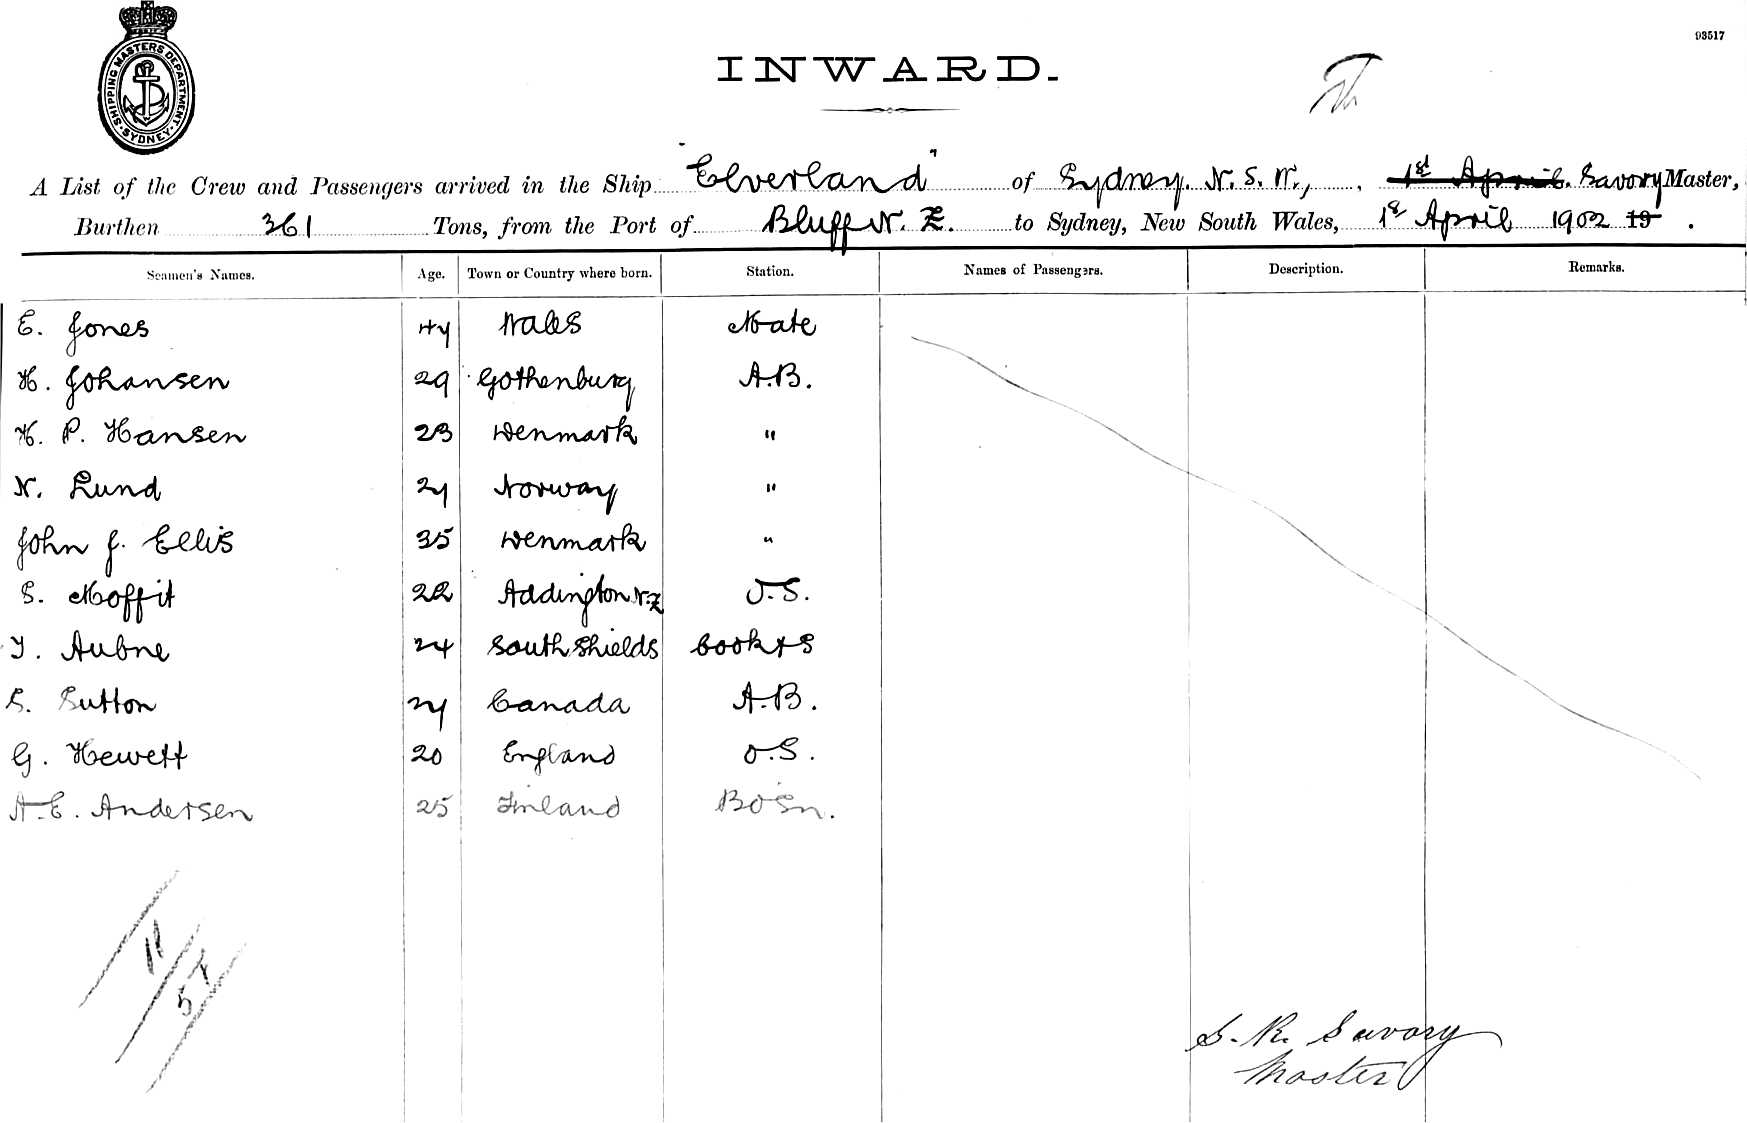 93517
SHIPPING MASTERS DEPARTMENT. SYDNEY
INWARD.
A List of the Crew and Passengers arrived in the Ship "Elverland" of Sydney. N. S. W., 1st April. Savory Master,
Burthen 361 Tons, from the Port of Bluff N. Z. to Sydney, New South Wales, 1st April 1902 19 .
Seamen's Names. Age. Town or Country where born. Station. Names of Passengers. Description. Remarks.
E. Jones 44 Wales Mate
H. Johansen 29 Gothenburg A.B.
H. P. Hansen 23 Denmark "
N. Lund 24 Norway "
John J. Ellis 35 Denmark "
S. Moffit 22 Addington N.Z O.S.
T. Aubne 24 South Shields Cook & S
S. Sutton 24 Canada A.B.
G. Hewett 20 England O.S.
A.E. Andersen 25 Finland BoSn.
11
5
S. R. Savory
Master